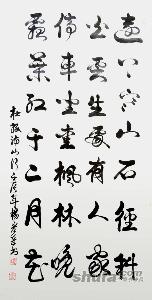 遠上寒山石徑斜
白雲生處有人家
停車坐愛楓林晚
霜葉紅于二月花
杜牧詩山行
shufa.com